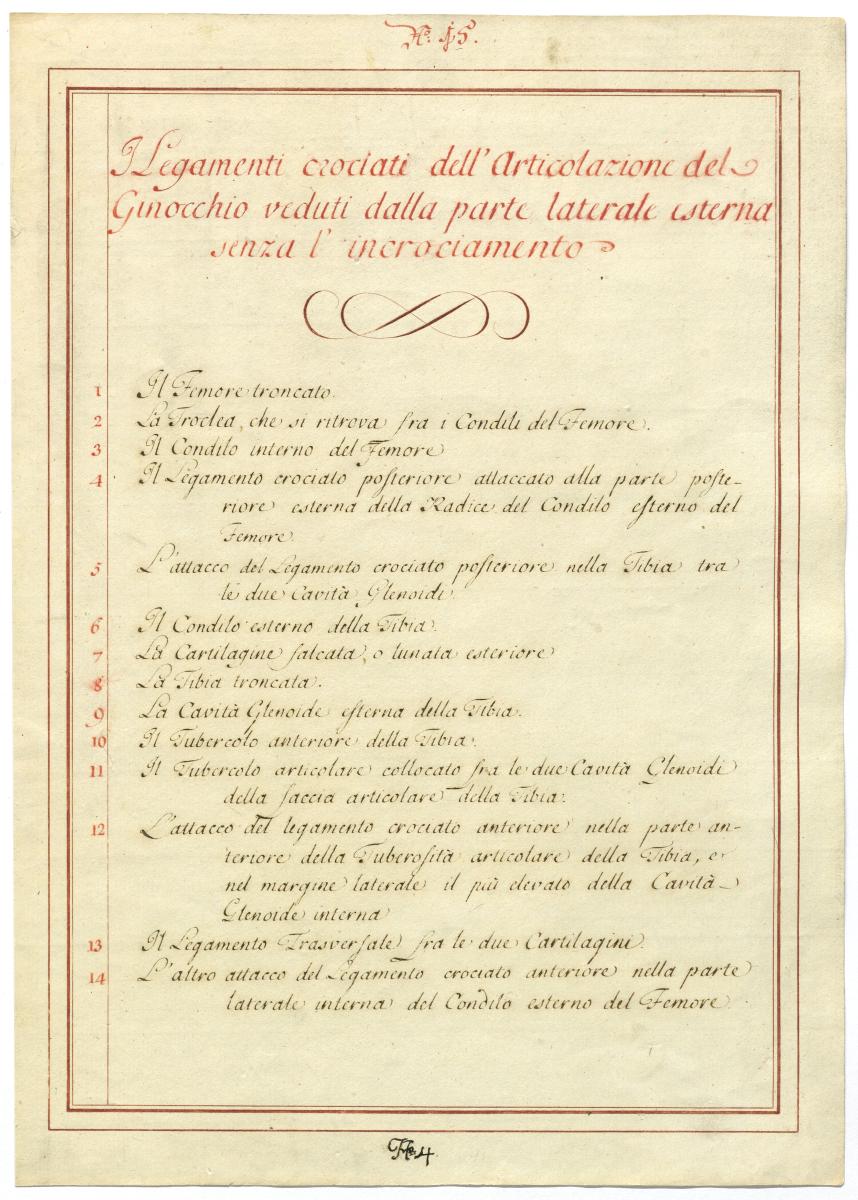 N.º 15.
I Legamenti crociati dell'Articolazione del
Ginocchio veduti dalla parte laterale esterna
senza l'incrociamento
1 Il Femore troncato.
2 La Troclea, che si ritrova fra i Condili del Femore.
3 Il Condilo interno del Femore
4 Il Legamento crociato posteriore attaccato alla parte poste-
riore esterna della Radice del Condilo esterno del
Femore.
5 L'attacco del Legamento crociato posteriore nella Tibia tra
le due Cavità Glenoidi.
6 Il Condilo esterno della Tibia.
7 La Cartilagine falcata, o lunata esteriore
8 La Tibia troncata.
9 La Cavità Glenoide esterna della Tibia.
10 Il Tubercolo anteriore della Tibia.
11 Il Tubercolo articolare collocato fra le due Cavità Glenoidi
della faccia articolare della Tibia.
12 L'attacco del legamento crociato anteriore nella parte an-
teriore della Tuberosità articolare della Tibia, e
nel margine laterale il più elevato della Cavità
Glenoide interna
13 Il Legamento Trasversale fra le due Cartilagini.
14 L'altro attacco del Legamento crociato anteriore nella parte
laterale interna del Condilo esterno del Femore.
N.º 4